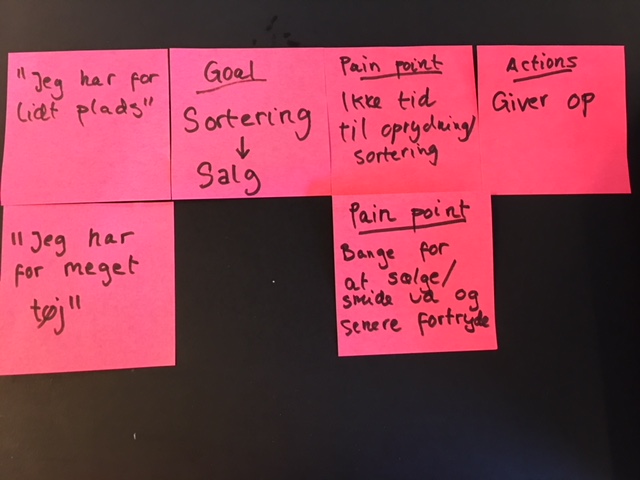 "Jeg har for
lidt plads"
Goal
Sortering
↓
Salg
Pain point
Ikke tid
til oprydning/
sortering
Actions
Giver op
"Jeg har
for meget
tøj"
Pain point
Bange for
at sælge/
smide ud og
senere fortryde